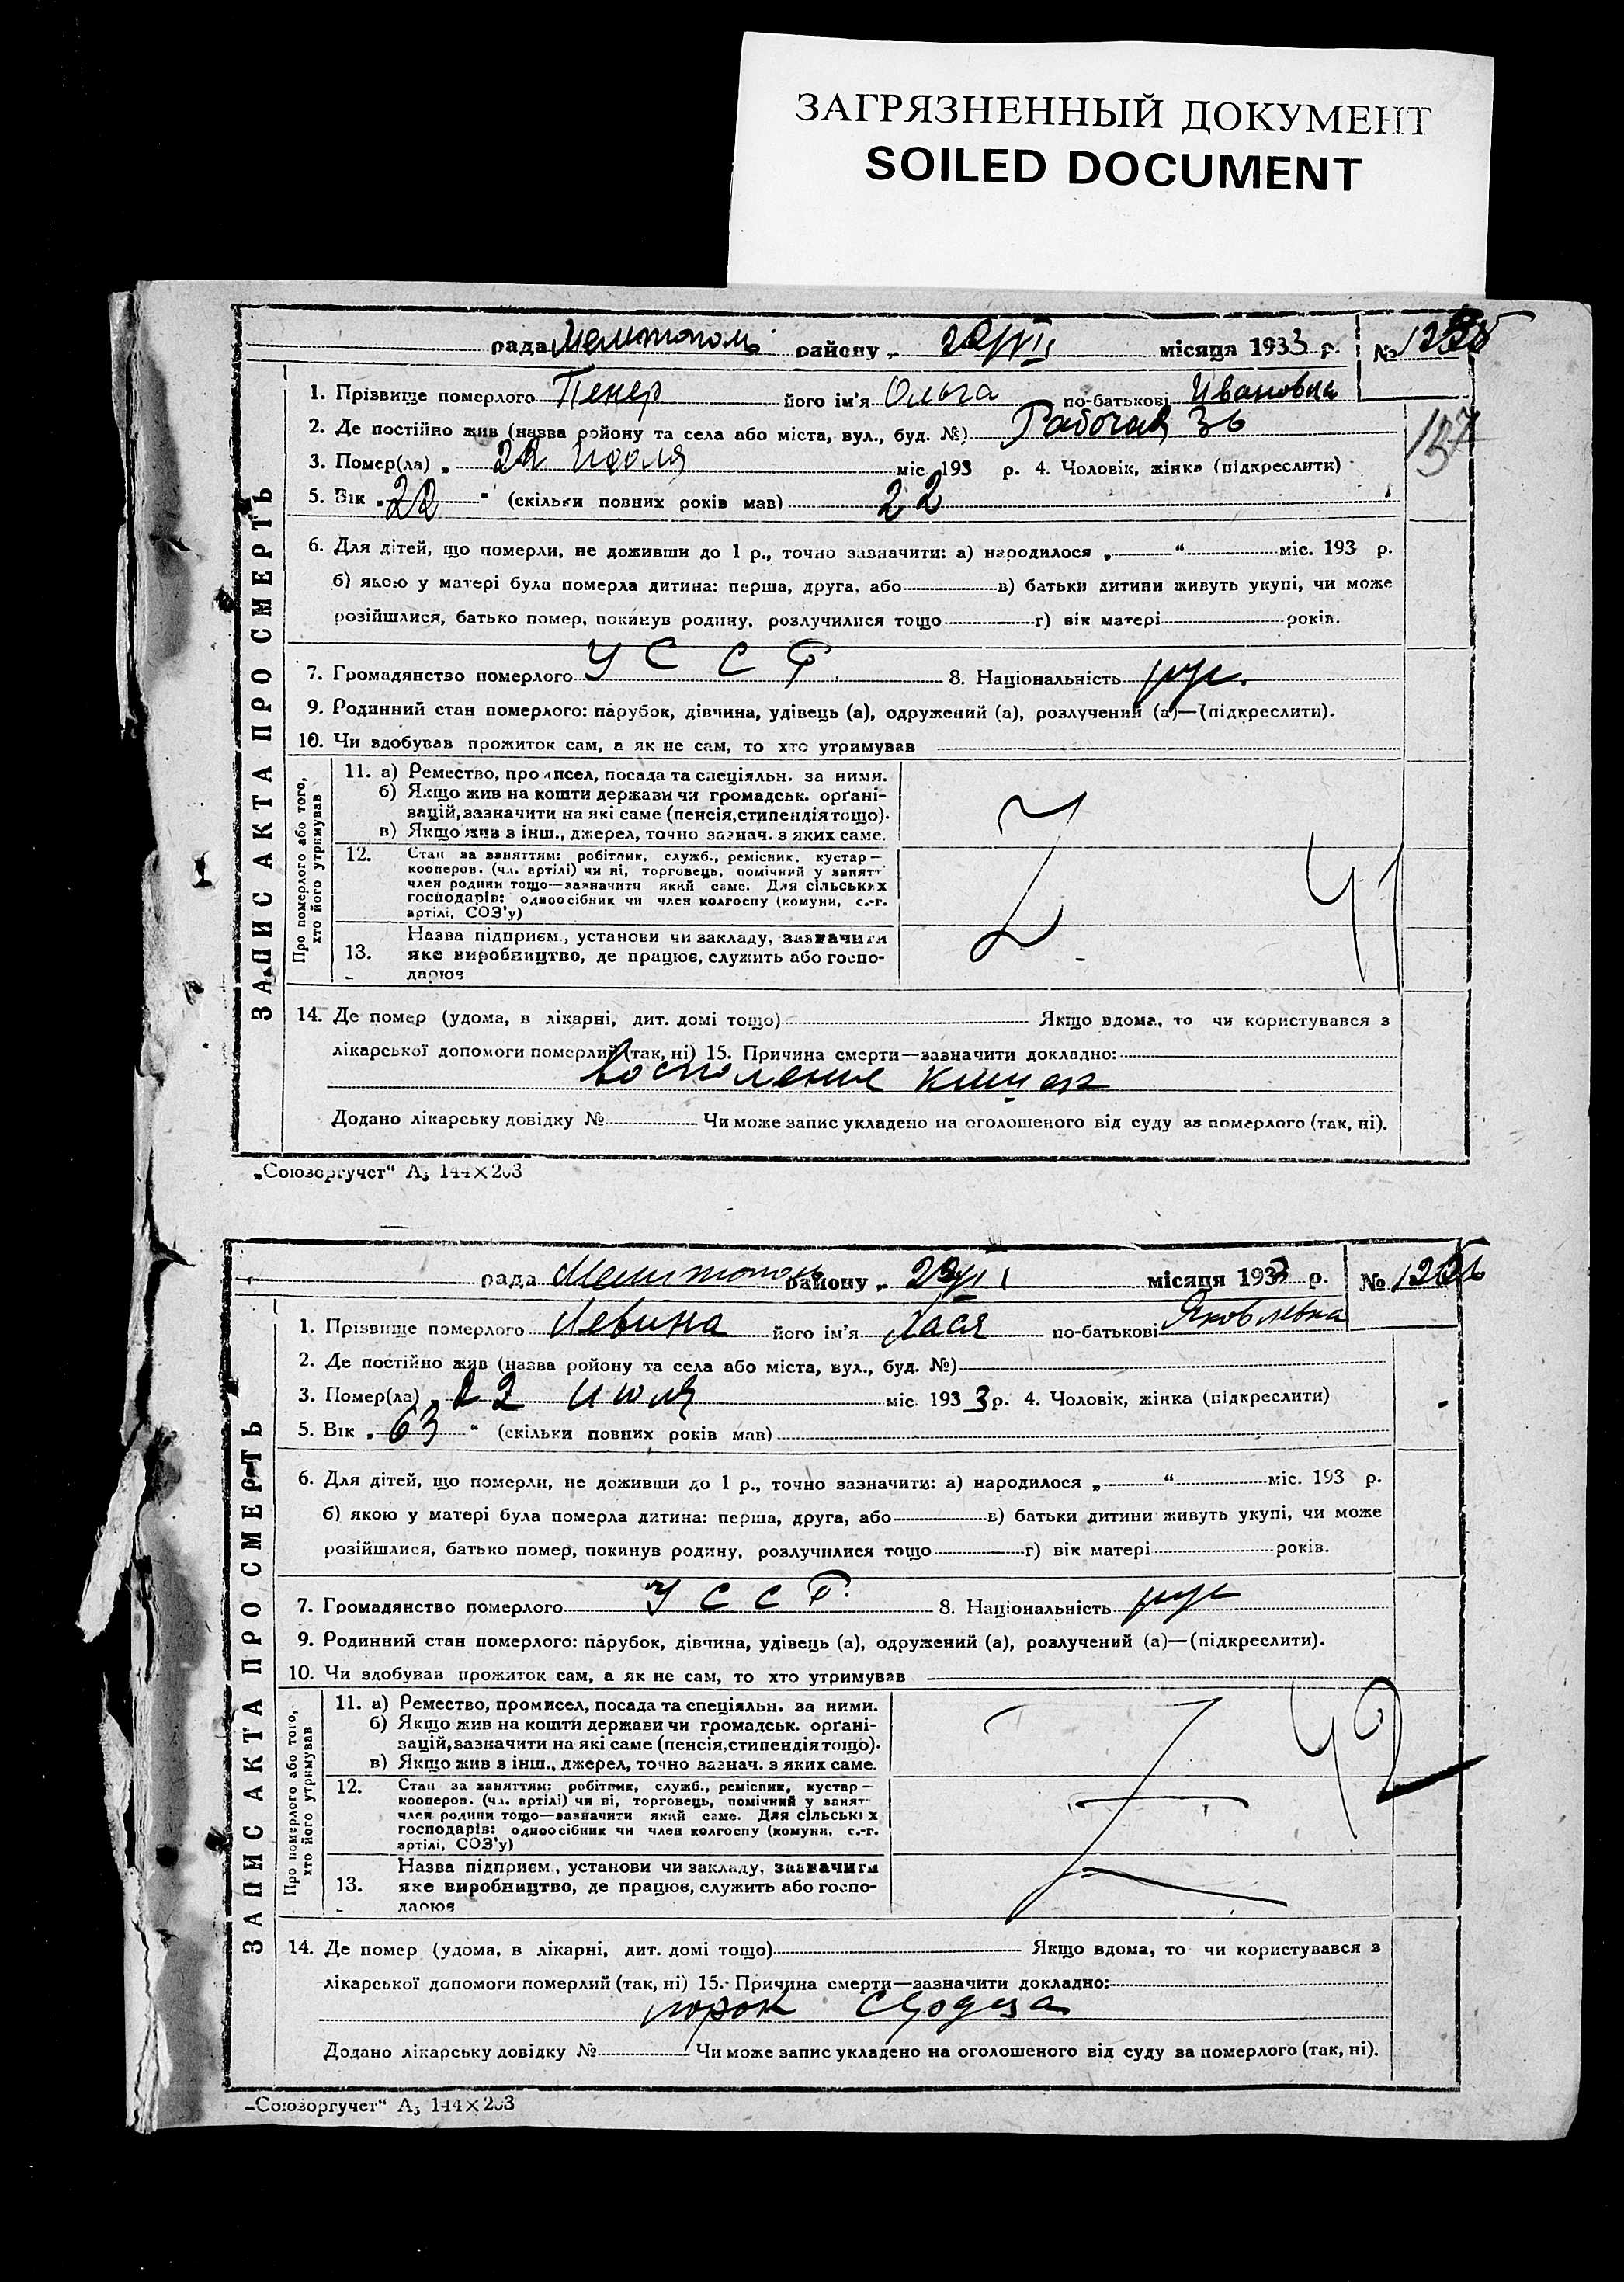 ЗАГРЯЗНЕННЫЙ ДОКУМЕНТ
SOILED DOCUMENT
рада Мелитополь району „ 22/VII місяця 1933 р. №
1. Прізвище померлого Пенер його ім’я Ольга по-батькові Ивановна
2. Де постійно жив (назва району та села або міста, вул., буд. №) Рабочая 36
137
3. Помер(ла) „ 22 июля міс. 193 р. 4. Чоловік, жінка (підкреслити)
5. Вік „ 22 “ (скільки повних років мав) 22
6. Для дітей, що померли, не доживши до 1 р., точно зазначити: а) народилося „ “ міс. 193 р.
б) якою у матері була померла дитина: перша, друга, або в) батьки дитини живуть укупі, чи може
розійшлися, батько помер, покинув родину, розлучилися тощо г) вік матері років.
7. Громадянство померлого УССР 8. Національність рус.
9. Родинний стан померлого: парубок, дівчина, удівець (а), одружений (а), розлучений (а)—(підкреслити).
10. Чи здобував прожиток сам, а як не сам, то хто утримував
Про померлого або того, хто його утримував
11. а) Ремество, промисел, посада та спеціяльн. за ними.
б) Якщо жив на кошти держави чи громадськ. орґані-
зацій, зазначити на які саме (пенсія, стипендія тощо).
в) Якщо жив з інш., джерел, точно зазнач. з яких саме.
12. Стан за заняттям: робітник, служб., ремісник, кустар—
кооперов. (чл. артілі) чи ні, торговець, помічний у занят
член родини тощо—зазначити який саме. Для сільських
господарів: одноосібник чи член колгоспу (комуни, с.-г.
артілі, СОЗ’у)
41
13. Назва підприєм., установи чи закладу, зазначити
яке виробництво, де працює, служить або госпо-
дарює
14. Де помер (удома, в лікарні, дит. домі тощо) Якщо вдома, то чи користувався з
лікарської допомоги померлий (так, ні) 15. Причина смерти—зазначити докладно:
Воспаление кишек
Додано лікарську довідку № Чи може запис укладено на оголошеного від суду за померлого (так, ні).
ЗАПИС АКТА ПРО СМЕРТЬ
„Союзоргучет“ А₅ 144×203
рада Мелитополь району „ місяця 1933 р. №
1. Прізвище померлого Левина його ім’я Хася по-батькові Яковлевна
2. Де постійно жив (назва району та села або міста, вул., буд. №)
3. Помер(ла) „ 22 июля міс. 1933 р. 4. Чоловік, жінка (підкреслити)
5. Вік „ 63 “ (скільки повних років мав)
6. Для дітей, що померли, не доживши до 1 р., точно зазначити: а) народилося „ “ міс. 193 р.
б) якою у матері була померла дитина: перша, друга, або в) батьки дитини живуть укупі, чи може
розійшлися, батько помер, покинув родину, розлучилися тощо г) вік матері років.
7. Громадянство померлого УССР 8. Національність рус
9. Родинний стан померлого: парубок, дівчина, удівець (а), одружений (а), розлучений (а)—(підкреслити).
10. Чи здобував прожиток сам, а як не сам, то хто утримував
Про померлого або того, хто його утримував
11. а) Ремество, промисел, посада та спеціяльн. за ними.
б) Якщо жив на кошти держави чи громадськ. орґані-
зацій, зазначити на які саме (пенсія, стипендія тощо).
в) Якщо жив з інш., джерел, точно зазнач. з яких саме.
42
12. Стан за заняттям: робітник, служб., ремісник, кустар—
кооперов. (чл. артілі) чи ні, торговець, помічний у занят
член родини тощо—зазначити який саме. Для сільських
господарів: одноосібник чи член колгоспу (комуни, с.-г.
артілі, СОЗ’у)
13. Назва підприєм., установи чи закладу, зазначити
яке виробництво, де працює, служить або госпо-
дарює
14. Де помер (удома, в лікарні, дит. домі тощо) Якщо вдома, то чи користувався з
лікарської допомоги померлий (так, ні) 15. Причина смерти—зазначити докладно:
порок сердца
Додано лікарську довідку № Чи може запис укладено на оголошеного від суду за померлого (так, ні).
ЗАПИС АКТА ПРО СМЕРТЬ
„Союзоргучет“ А₅ 144×203